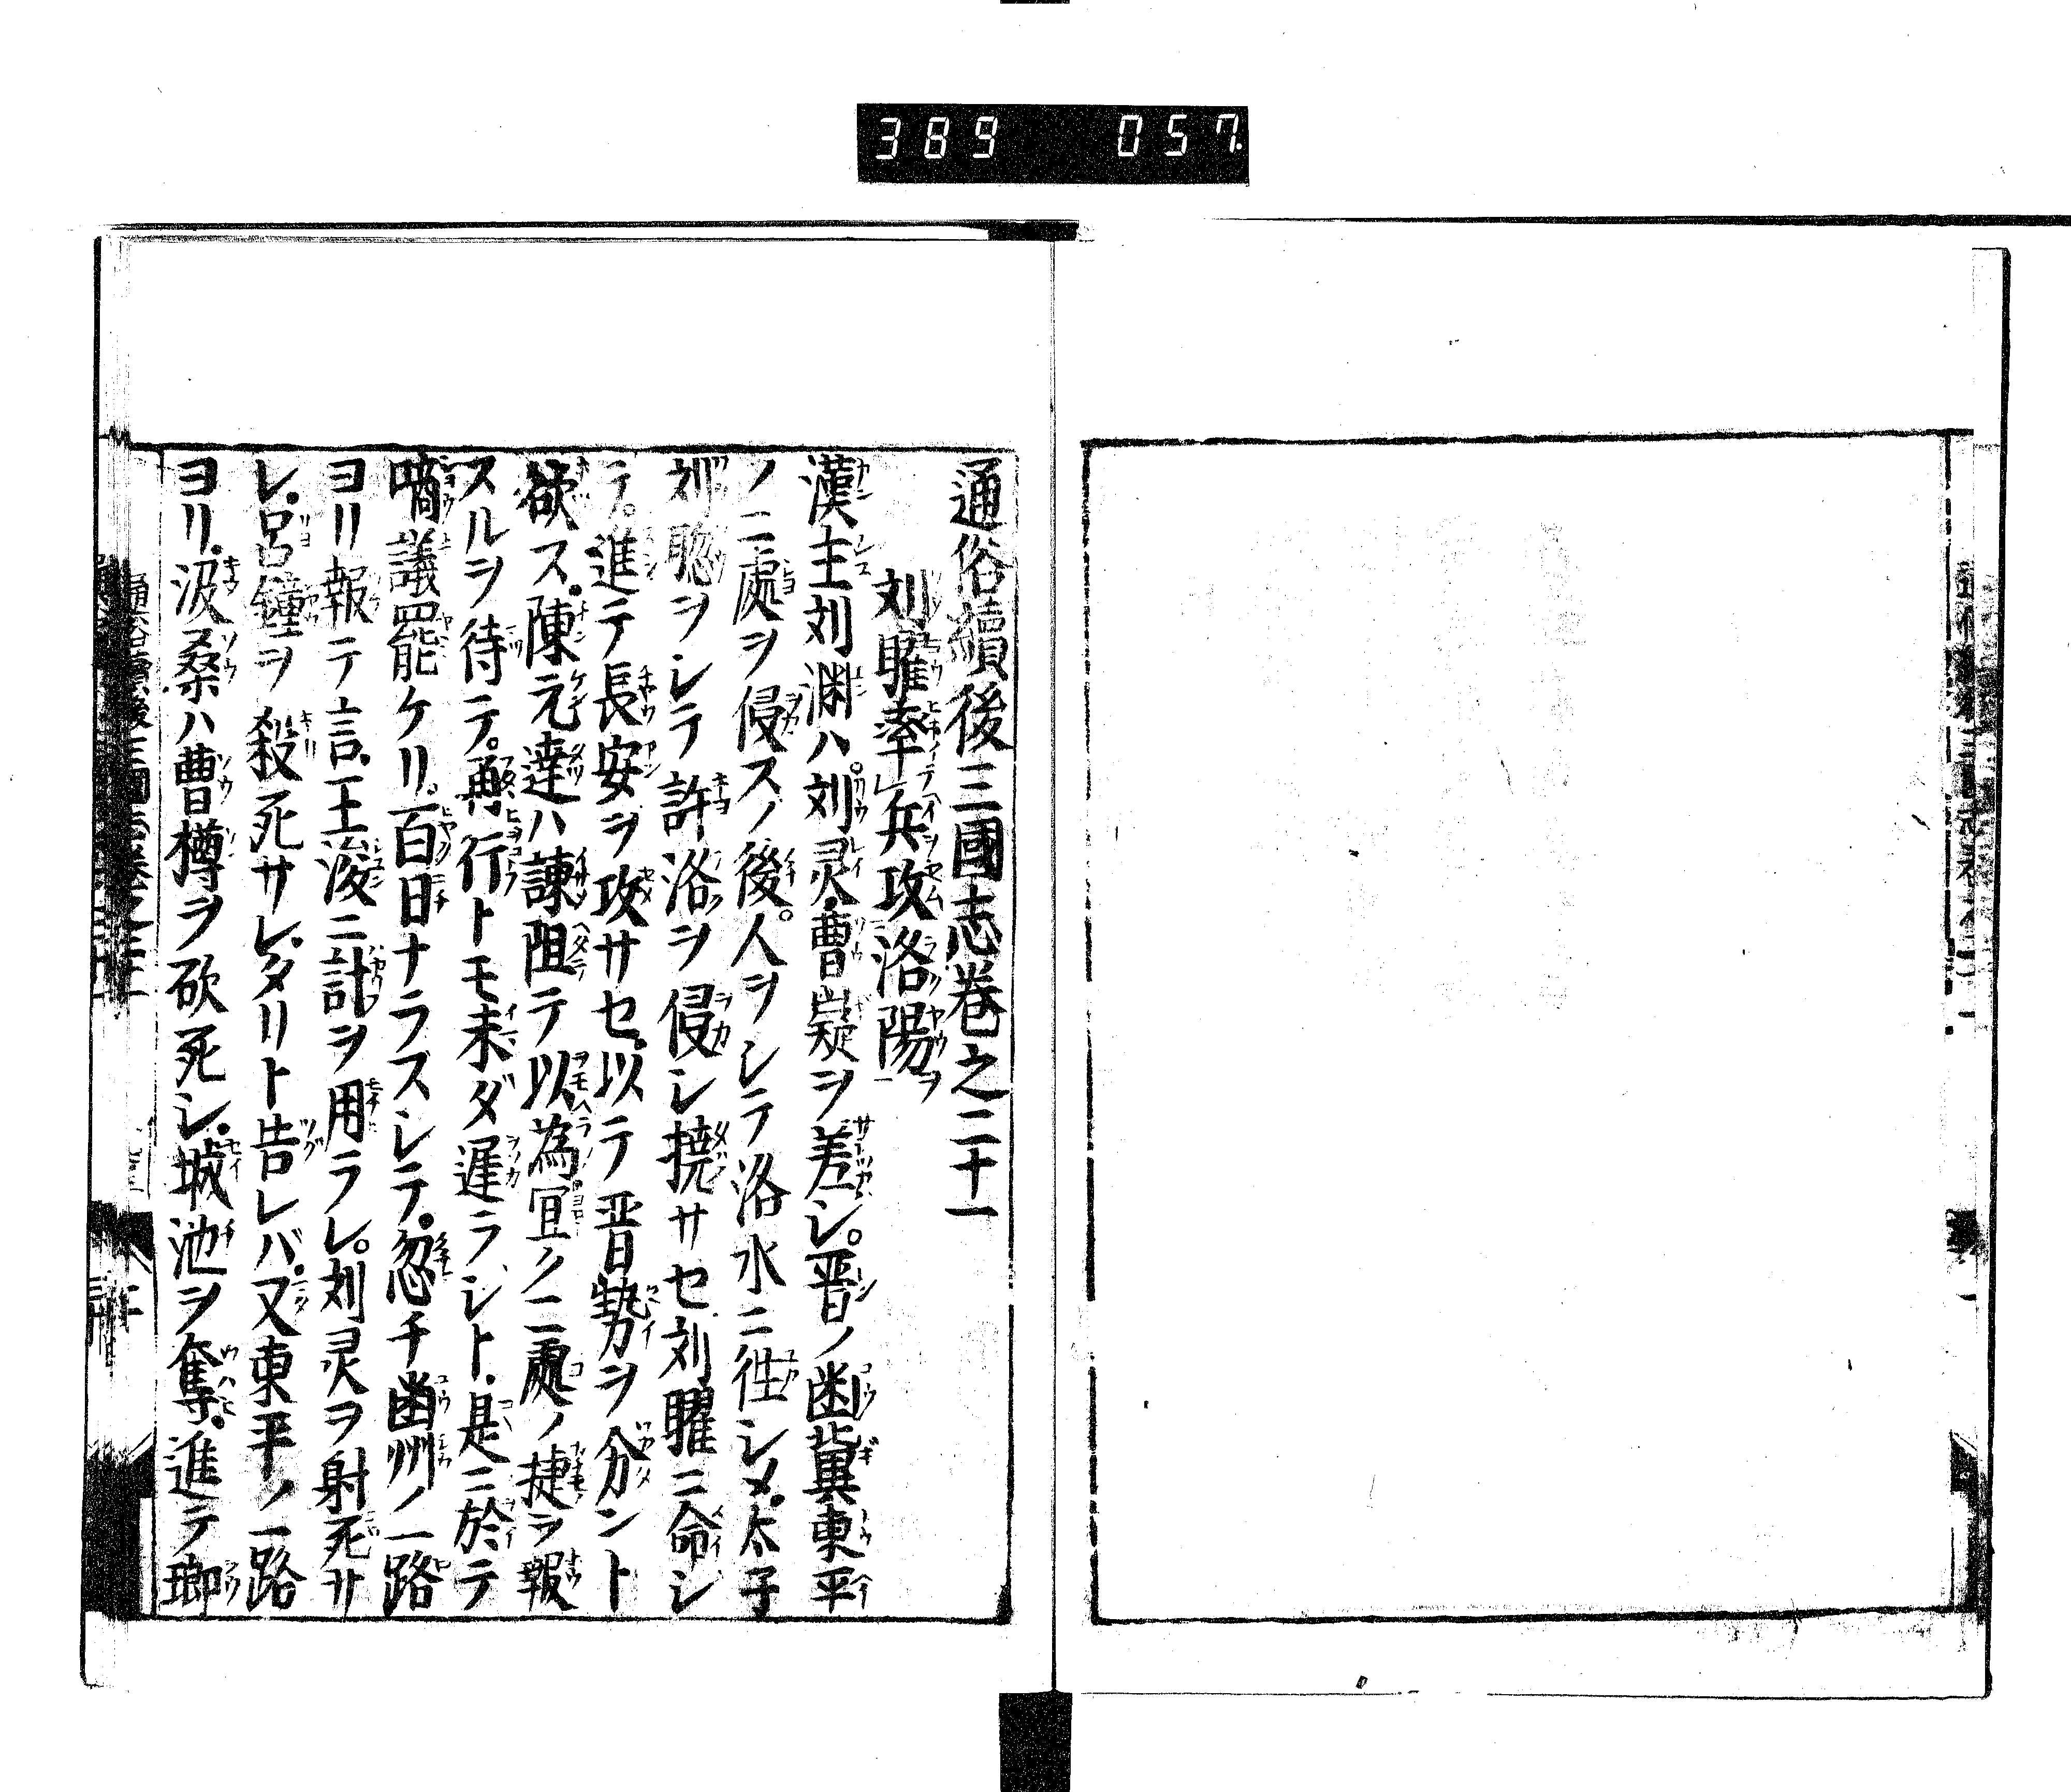 389 057
通俗續後三國志巻之二十一
刘曜率兵攻洛陽
漢主刘渊ハ。刘灵曹嶷ヲ差シ。晋ノ幽冀東平
ノ二處ヲ侵スノ後。人ヲシテ洛水ニ徃シメ。太子
刘聡ヲシテ許洛ヲ侵シ撓サセ刘曜ニ命シ
テ。進テ長安ヲ攻サセ以テ晋勢ヲ分ント
欲ス。陳元達ハ諫阻テ以為冝ク二處ノ捷ヲ報
スルヲ待テ。再行トモ未ダ遲ラシト。是ニ於テ
啇議罷ケリ。百日ナラスシテ。忽チ幽州ノ一路
ヨリ報テ言王浚ニ計ヲ用ラレ。刘灵ヲ射死サ
レ。呂鍾ヲ殺死サレタリト告レバ。又東平ノ一路
ヨリ。汲桑ハ曹樽ヲ砍死シ。城池ヲ奪。進テ瑯